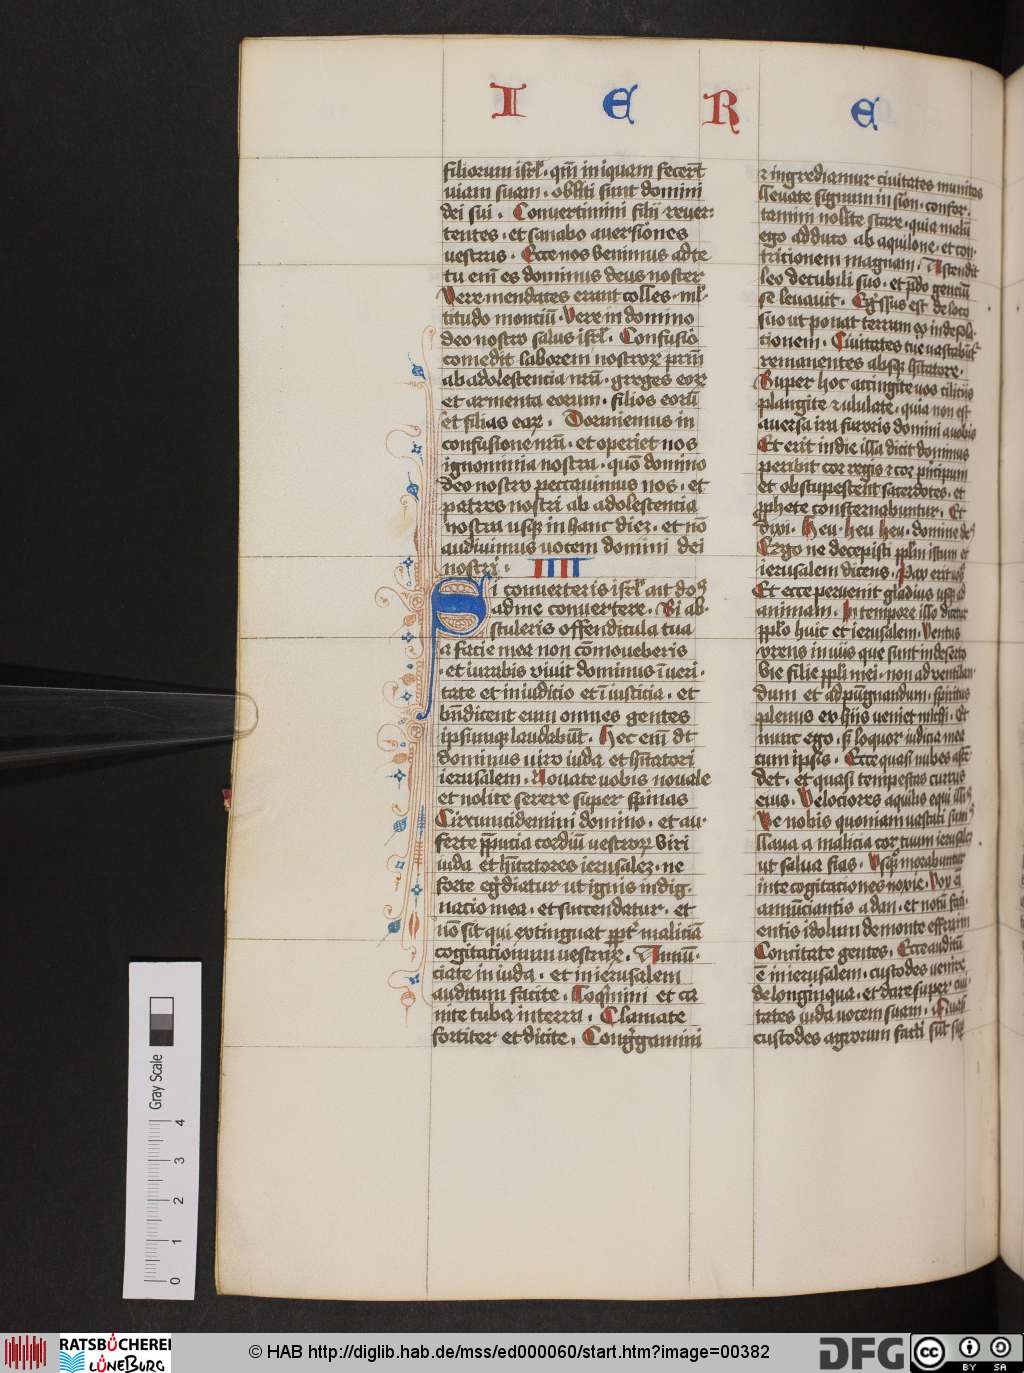 I E R E
filiorum isrl̄ · qm̄ iniquam fecer̄t
uiam suam · obliti sunt domini
dei sui · Convertimini filij rever:
tentes · et sanabo auersiones
uestras · Ecce nos venimus ad te
tu em̄ es dominus deus noster
Vere mendates erant colles · ml̄:
titudo montiū · Vere in domino
deo nostro salus isrl̄ · Confusio
comedit laborem nostroꝝ pr̄m̄
ab adolestentia nrā̄ · greges eoꝝ
et armenta eorum · filios eorū
et filias eoꝝ · Dormiemus in
confusione nrā̄ · et operiet nos
ignominia nostra · quō domino
deo nostro peccauimus nos · et
patres nostri ab adolestentia
nostra usqꝫ in hanc diez · et nō
audiuimus uocem domini dei
nostri · IIII
Si converteris isrl̄ ait doꝰ
ad me convertere · Si ab:
stuleris offendicula tua
a facie mea non cōmoueberis
· et iurabis viuit dominus ī ueri ·
tate et in iuditio et ī iusticia · et
bn̄dicent eum omnes gentes
ipsumqꝫ laudabūt · Hec em̄ dt̄
dominus uiro iuda et hītatori
ierusalem · Nouate uobis nouale
et nolite serere super spinas
Circumcidemini domino · et au ·
ferte p̄pucia cordiū uestroꝝ viri
iuda et hītatores ierusalez · ne
forte eḡdiatur ut ignis indig:
natio mea · et succendatur · et
nō sit qui extinguat ꝓpt̄ maliciā
cogitationum uestraꝝ · Annū ·
ciate in iuda · et in ierusalem
auditum facite · Loq̄mini et ca
nite tuba in terra · Clamate
fortiter et dicite · Cong̃gamini
⁊ ingrediamur ciuitates munitas
lleuate signum in sion · confor ·
tamini nolite stare · quia malū
ego adduco ab aquilone · et con ·
tritionem magnam · Ascendit
leo de cubili suo · et p̄do gentiū
se leuauit · Eg̃ssus est de loco
suo ut ponat terram ī desola
tionem · Ciuitates tue uastabūt᷑
remanentes absqꝫ hītatore ·
Super hoc accingite uos ciliciis
plangite ⁊ ululate · quia non est
auersa ira furoris domini a uobis
Et erit in die illa dicit dominus
peribit cor regis ⁊ cor pͥncipum
et obstupescent sacerdotes · et
ꝓphete consternabuntur · Et
dixi · Heu · heu heu · domine deꝰ
Ergo ne decepisti pp̄lm istum et
ierusalem dicens · Pax erit uob̄
Et ecce peruenit gladius usqꝫ ad
animam · In tempore illo dicetur
pp̄lo huic et ierusalem · Ventus
urens in uiis que sunt in deserto
vie filie pp̄li mei · non ad ventilan ·
dum et ad purgandum · spiritus
plenus ex hiis veniet michi · Et
nunc ego · sꝫ loquor iudicia mea
cum ipsis · Ecce quasi nubes ascē
det · et quasi tempestas currus
eius · Velociores aquilis equi illiꝰ
Ve nobis quoniam uastati sumꝰ
llaua a malicia cor tuum ierusalē
ut salua fias · Usqꝫ morabuntur
in te cogitationes noxie · Vox ē
annūciantis a dan · et notū faci ·
entis idolum de monte effraim
Concitate gentes · Ecce auditū
ē in ierusalem · custodes venire
de longinqua · et dare super ciui ·
tates iuda uocem suam · Quasi
custodes agrorum facti sūt sup̄
Gray Scale
0 1 2 3 4
RATSBÜCHEREI
LÜNEBURG
© HAB http://diglib.hab.de/mss/ed000060/start.htm?image=00382
DFG
cc BY SA